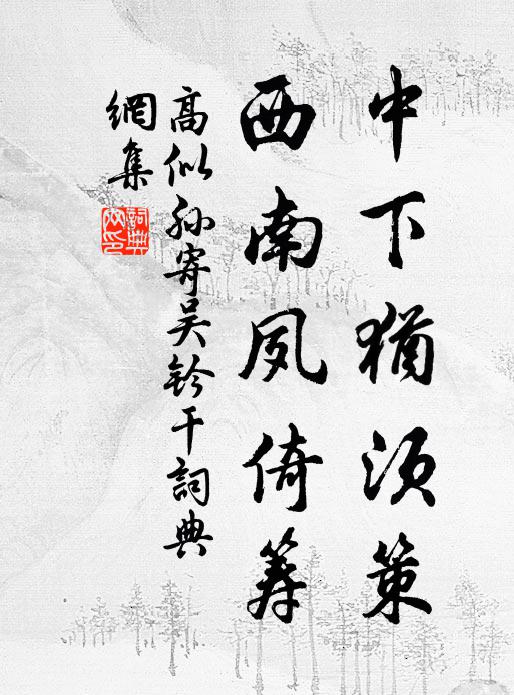 中下猶須策
西南夙倚筹
高似孙寄吴钤干詞典
網集
詞典
网印